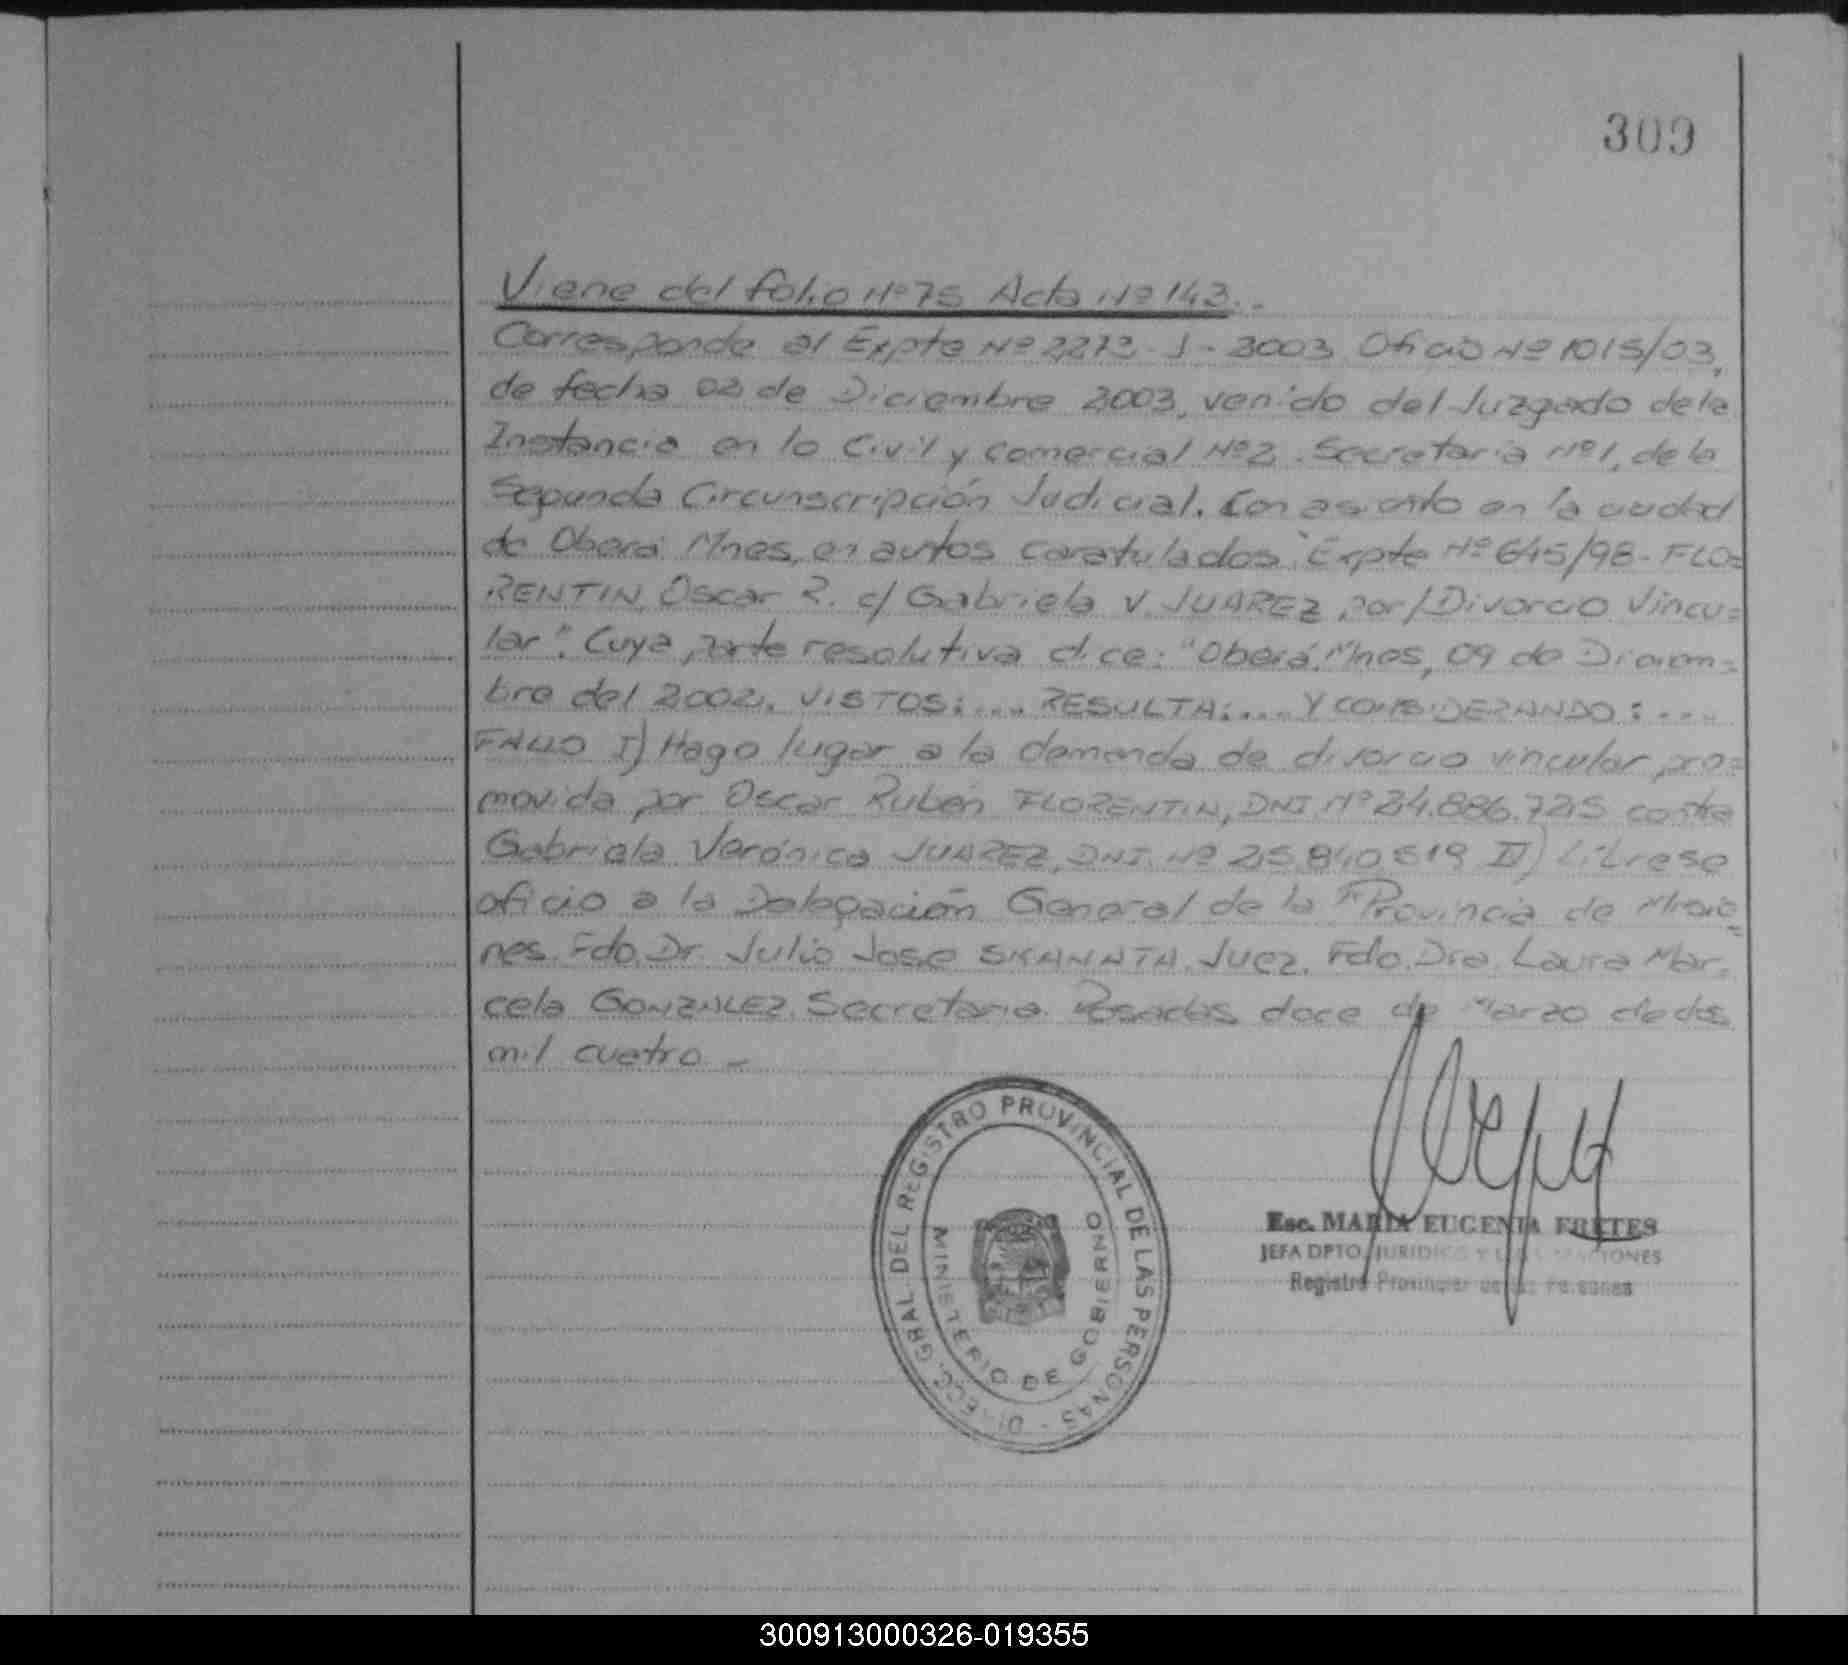 309
Viene del folio Nº 75 Acta Nº 143..
Corresponde al Expte Nº 2273-J-2003 Oficio Nº 1015/03,
de fecha 02 de Diciembre 2003, venido del Juzgado de 1a
Instancia en lo Civil y comercial Nº2. Secretaria Nº1, de la
Segunda Circunscripción Judicial. Con asiento en la ciudad
de Oberá Mnes, en autos caratulados "Expte Nº 645/98- FLO=
RENTIN, Oscar R. c/ Gabriela V. JUAREZ por/Divorcio Vincu=
lar". Cuya parte resolutiva dice: "Oberá. Mnes, 09 de Diciem=
bre del 2002. VISTOS:.... RESULTA:.... Y CONSIDERANDO:....
FALLO I) Hago lugar a la demanda de divorcio vincular pro=
movida por Oscar Rubén FLORENTIN, DNI. Nº 24.886.725 contra
Gabriela Verónica JUAREZ, DNI. Nº 25.840.519 II) Líbrese
oficio a la Delegación General de la Provincia de Misio=
nes. Fdo. Dr. Julio Jose SKANATA. Juez. Fdo. Dra. Laura Mar=
cela GONZALEZ. Secretaria. Posadas, doce de Marzo de dos
mil cuatro.-
DIRECC. GRAL. DEL REGISTRO PROVINCIAL DE LAS PERSONAS -
MINISTERIO DE GOBIERNO
Esc. MARIA EUGENIA FRETES
JEFA DPTO. JURIDICO Y
Registro Provincial de las Personas
300913000326-019355